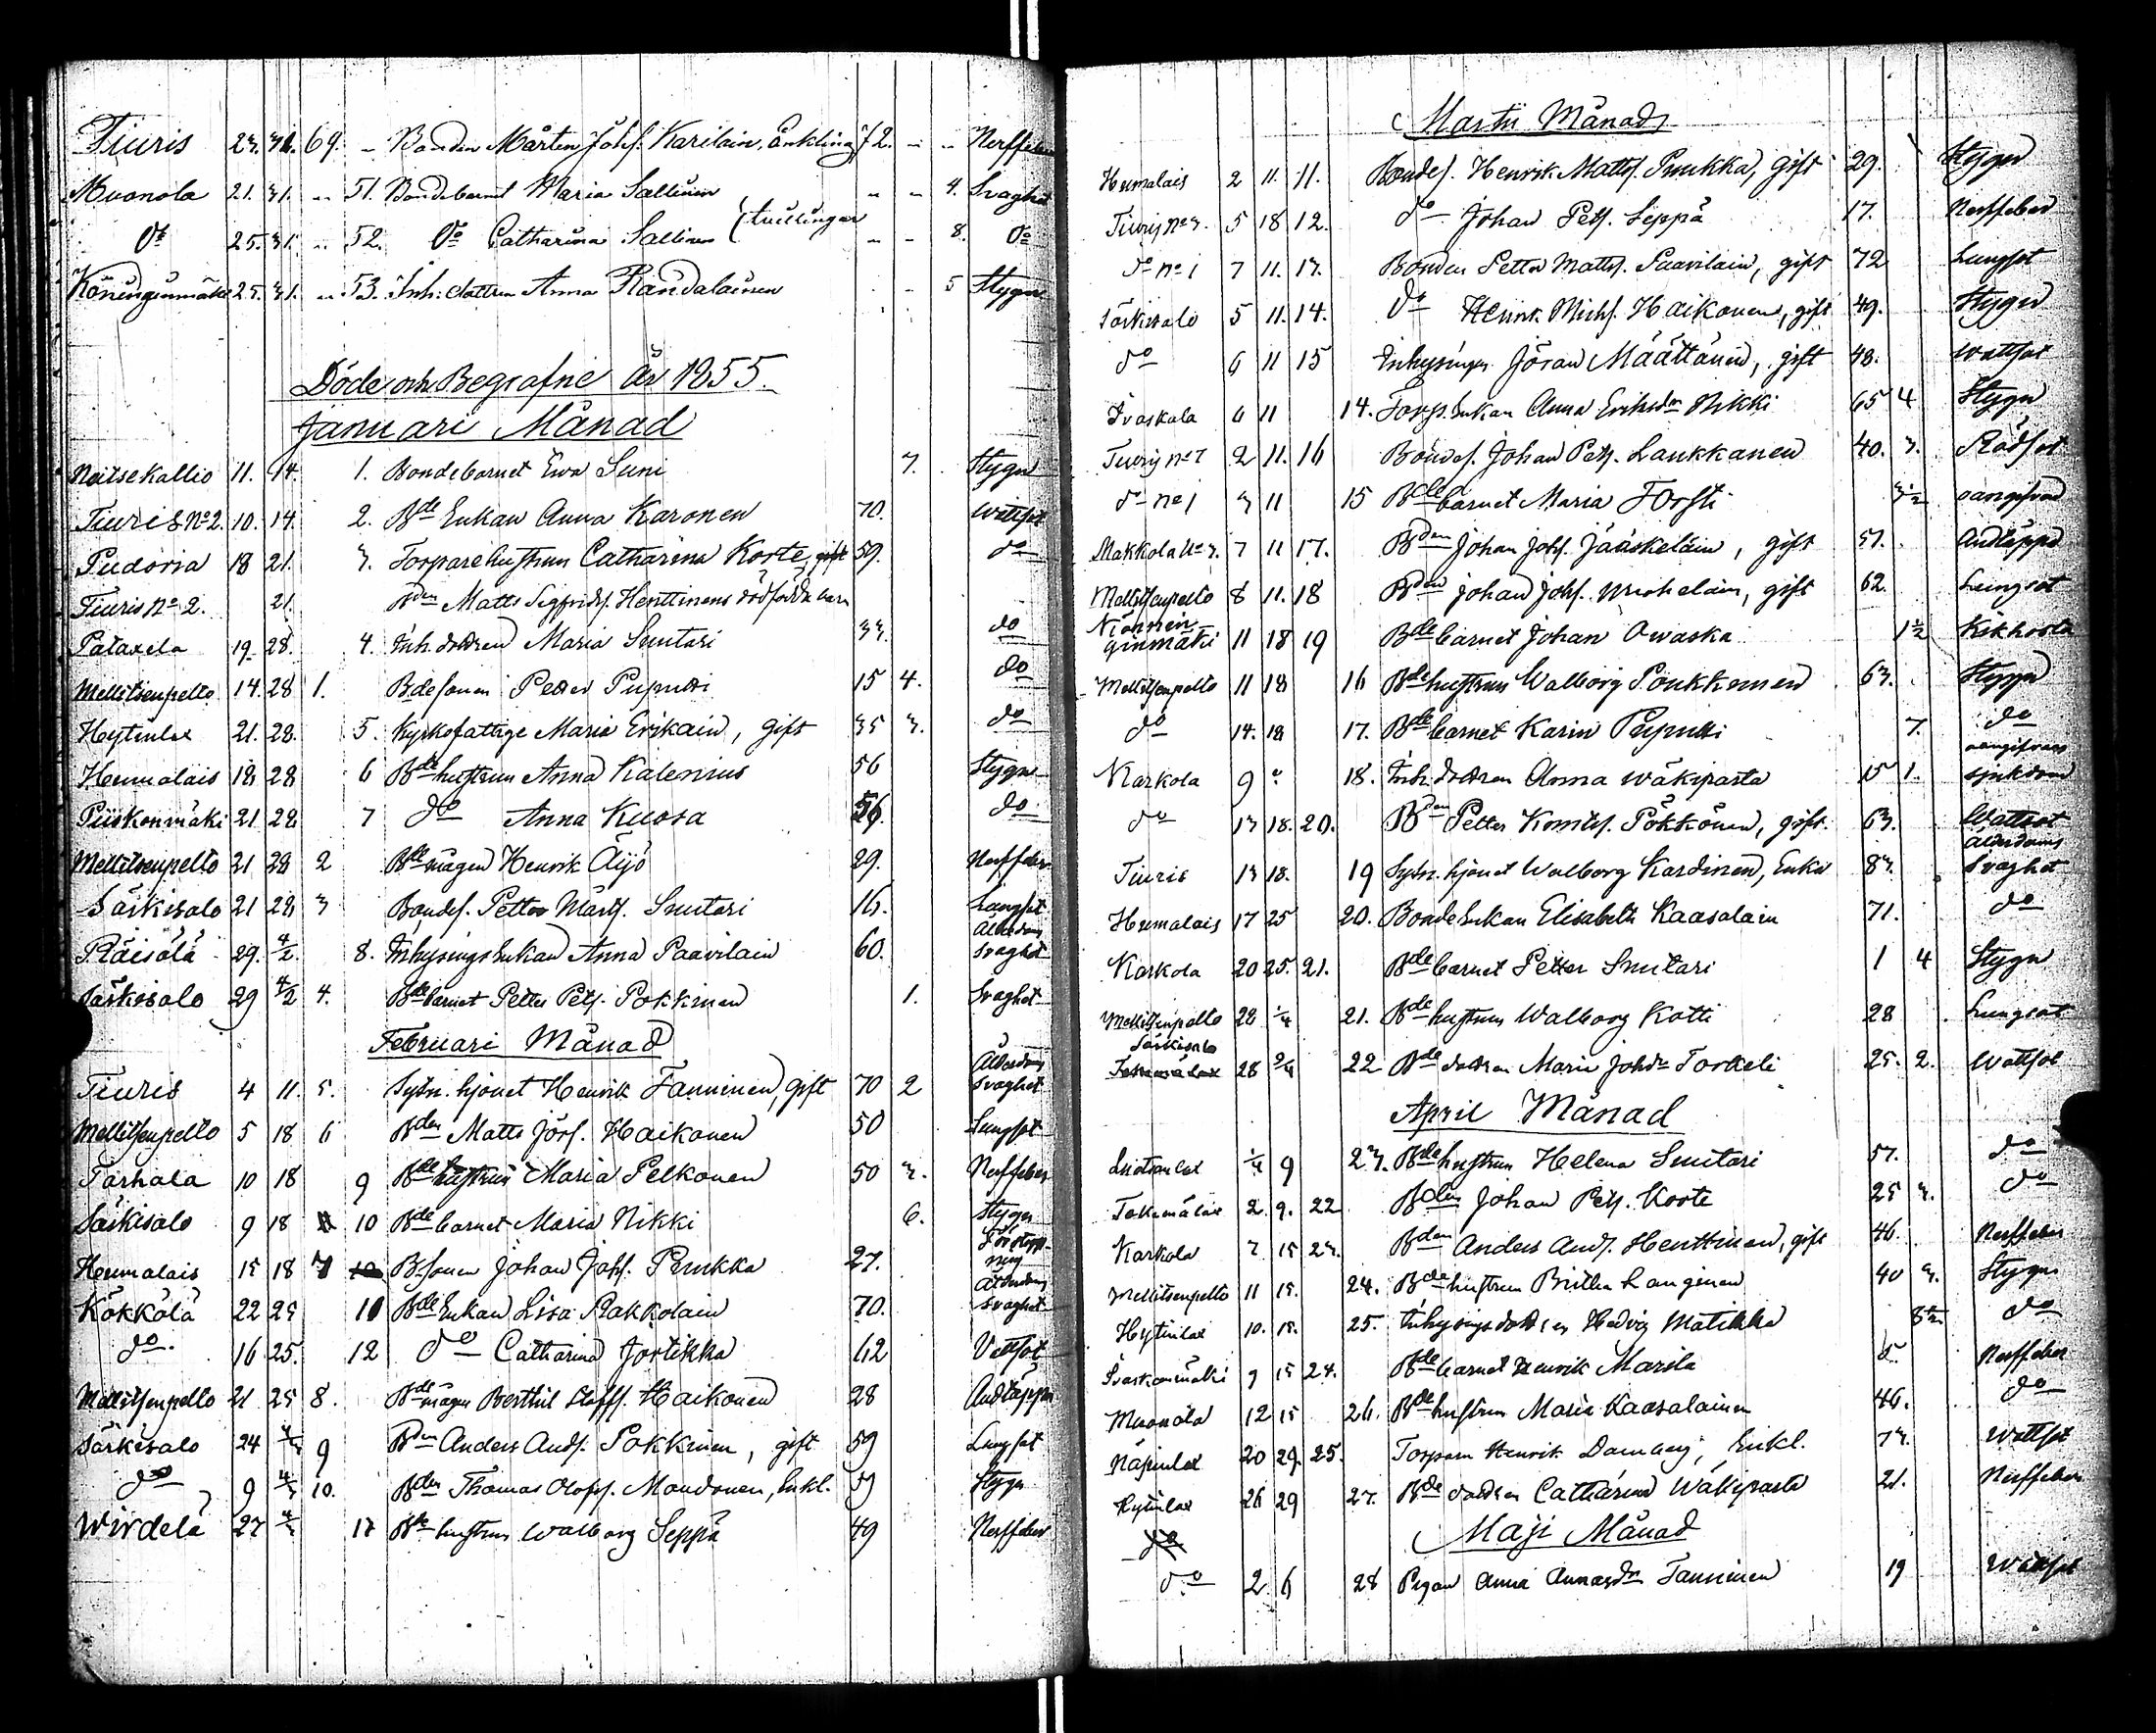 Tiuris 23. 31. 69. – Bonden Mårten Johs. Karilain, Enkling 72. – – Nerffeber
Kuonola 21. 31. – 51. Bondebarnet Maria Sallinen – – 4. Svaghet
do 25. 31. – 52. do Catharina Sallinen (tvillingar – – 8. do
Köninginmäki 25. 31. – 53. Inh: dottren Anna Randalainen – 5 Stygn
Döde och Begrafne år 1855.
Januari Månad
Naitsekallio 11. 14. 1. Bondebarnet Ewa Suni 7. Stygn
Tiuris No 2. 10. 14. 2. Bde Enkan Anna Karonen 70. Wattsot
Pudoria 18 21. 3. Torparehustrun Catharina Korte, gift 59. do
Tiuris No 2. 21. Bden Matts Sigfridss. Henttinens dödfödda barn
Pataxela 19. 28. 4. Inh. dottren Maria Smutari 33. do
Mellitsenpelto 14. 28 1. Bdesonen Petter Puputti 15 4. do
Hytinlax 21. 28. 5. Kyrkofattige Maria Erikain, gift 35 3. do
Heumalais 18 28 6 Bde hustrun Anna Kalenius 56 Stygn
Piiskonmäki 21 28 7 do Anna Kuosa 56. do
Mellitsenpelto 21 28 2 Bde mågen Henrik Äijö 29. Nerffeber
Särkisalo 21 28 3 Bondes. Petter Mårts. Smutari 16. Lungsot
Räisälä 29. 4/2. 8. Inhysings Enkan Anna Paavilain 60. Ålderdoms Svaghet
Särkisalo 29 4/2 4. Bde barnet Petter Pets. Pokkinen 1. Svaghet
Februari Månad
Tiuris 4 11. 5. Sytn. hjonet Henrik Tanninen, gift 70 2 Ålderdoms Svaghet
Mellitsenpelto 5 18 6 Bden Matts Jörs. Haikonen 50 Lungsot
Tarhala 10 18 9 Bde hustrun Maria Pelkonen 50 3. Nerffeber
Särkisalo 9 18 10 Bde barnet Maria Nikki 6. Stygn
Heumalais 15 18 7 B. sonen Johan Johs. Penkka 27. Förstoppning
Kökkölä 22 25 11 Bde Enkan Lisa Rakkolain 70. Ålderdoms Svaghet
do 16 25. 12 do Catharina Jortikka 62 Vattsot
Mellitsenpelto 21 25 8. Bde mågen Berthil Staffs. Haikonen 28 Andtäppa
Särkisalo 24 4/3 9 Bden Anders Ands. Pokkinen, gift 59 Lungsot
do 9 4/3 10. Bden Thomas Olofss. Mondonen, Enkl. 59 Stygn
Wirdelä 27 4/3 13 Bde hustrun Walborg Seppä 49 Nerffeber
Martii Månad
Heumalais 2 11. 11. Bondes. Henrik Matts. Penkka, gift 29. Stygn
Tiuris No 3. 5 18 12. do Johan Pets. Seppä 17. Nerffeber
do No 1 7 11. 13. Bonden Petter Matts. Paavilain, gift 72 Lungsot
Särkisalo 5 11. 14. do Henrik Michs. Haikonen, gift 49. Stygn
do 6 11 15 Inhysingen Jöran Määttänen, gift 48. Wattsot
Ivaskala 6 11 14. Torp. Enkan Anna Eriksdr Nikki 65 4 Stygn
Tiuris No 7 2 11. 16 Bondes. Johan Pets. Laukkanen 40. 3. Rödsot
do No 1 3 11 15 Bde barnet Maria Forsti 3½ oangifven
Makkola No 3. 7 11 17. Bden Johan Johs. Jääskeläin, gift 51. Andtäppa
Mellitsenpelto 8 11. 18 Bden Johan Johs. , gift 62. Lungsot
Könninginmäki 11 18 19 Bde barnet Johan Awaska 1½ Kikhosta
Mellitsenpelto 11 18 16 Bde hustrun Walborg Poukkunen 63. Stygn
do 14. 18 17. Bde barnet Karin Puputti 7. do
Karkola 9 18. Inh. dottren Anna Wäkiparta 15 1. oangifven sjukdom
do 13 18. 20. Bden Petter Pökkönen, gift. 63. Wattsot
Tiuris 13 18. 19 Sytn. hjonet Walborg Kardinen, Enka 83. Ålderdoms Svaghet
Heumalais 17 25 20. Bonde Enkan Elisabeth Kaasalain 71. do
Karkola 20 25. 21. Bde barnet Petter Smutari 1 4 Stygn
Mellitsenpelto 28 1/4 21. Bde hustrun Walborg Kotti 28 Lungsot
Särkisalo 28 2/4 22 Bde dottren Maria Johsdr Torkeli 25. 2. Wattsot
April Månad
1/4 9 23. Bde hustrun Helena Smutari 57. do
2. 9. 22 Bden Johan Pets. Korte 25 3. do
Karkola 7 15 23. Bden Anders Ands. Henttinen, gift 46. Nerffeber
Mellitsenpelto 11 15. 24. Bde hustrun Britha Langinen 40 3. Stygn
Hytinlax 10. 15. 25. Inhysings dottren Hedvig Matikka do
Ivaskanmäki 9 15 24. Bde barnet Henrik Marila Nerffeber
Kuonola 12 15 26. Bde hustrun Maria Kaasalainen 46. do
Näpinlax 20 29. 25. Torparn Henrik Damberg, Enkl. 73. Wattsot
Hytinlax 26 29 27. Bde dottren Catharina Wäkiparta 21. Nerffeber
Maji Månad
do
do 2. 6 28 Pigan Anna Tanninen 19 Wattsot